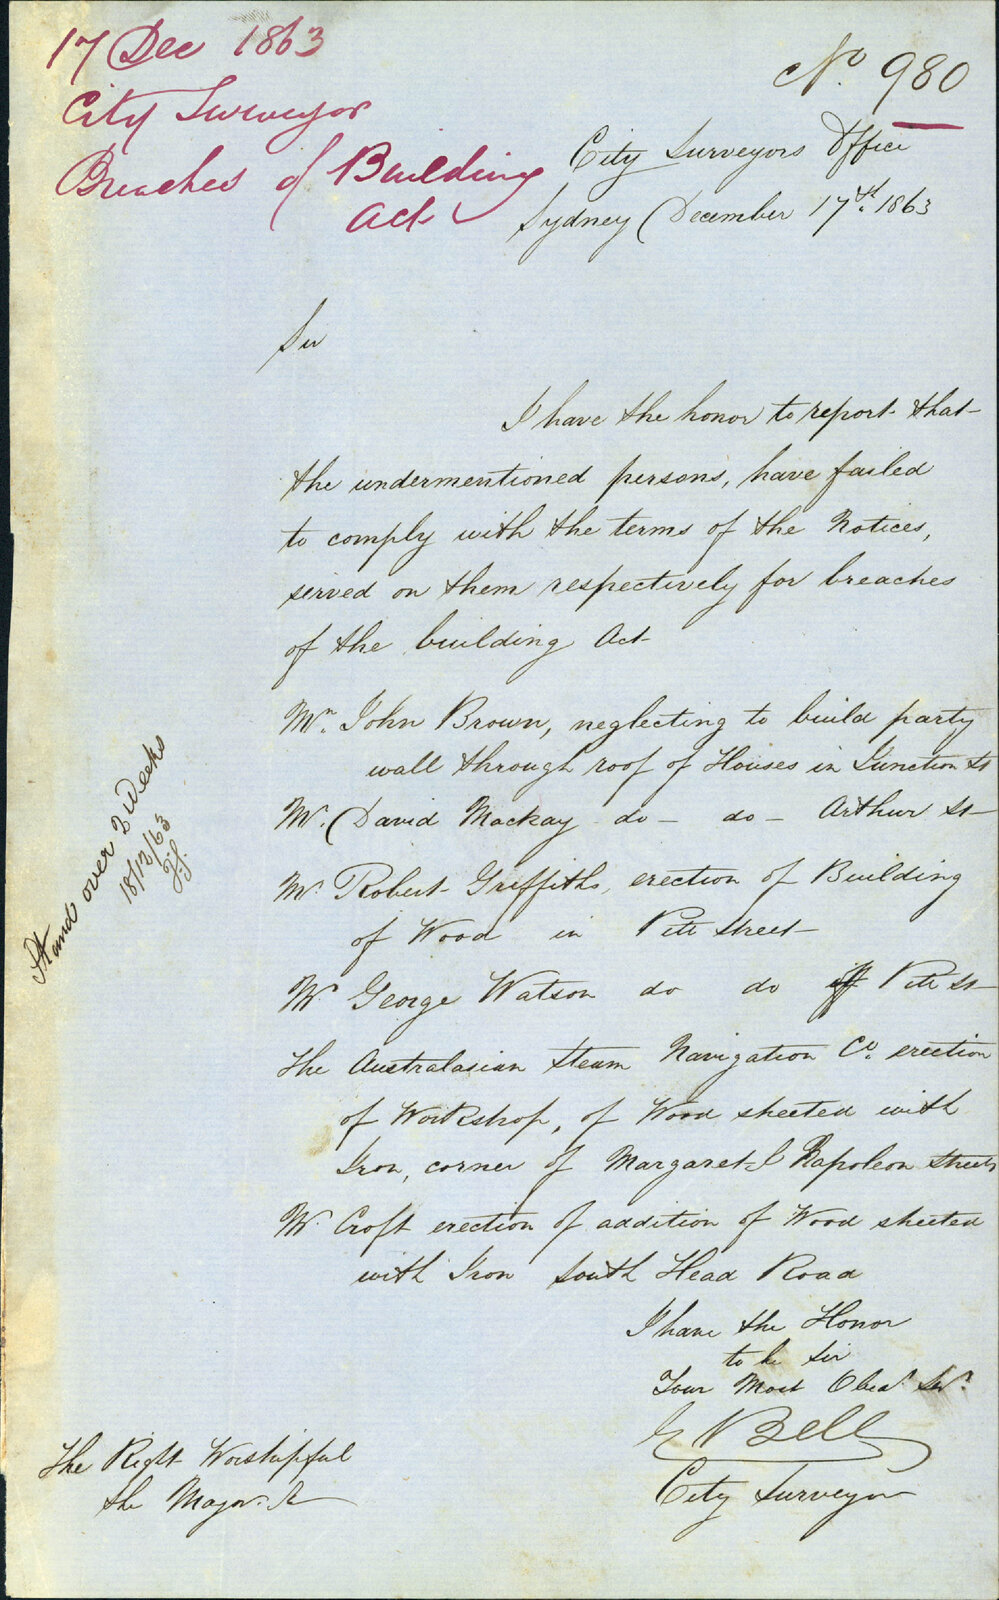 17 Dec 1863
City Surveyor
Breaches of Building
Act
No. 980
City Surveyors Office
Sydney December 17th. 1863
Sir
I have the honor to report that
the undermentioned persons, have failed
to comply with the terms of the Notices,
served on them respectively for breaches
of the building Act
Mr. John Brown, neglecting to build party
wall through roof of Houses in Junction St
Mr. David Mackay do – do – Arthur St
Mr. Robert Griffiths, erection of Building
of Wood in Pitt Street
Mr George Watson do do Pitt St
The Australasian Steam Navigation Co. erection
of Workshop, of Wood sheeted with
Iron, corner of Margaret & Napoleon Streets
Mr. Croft erection of addition of Wood sheeted
with Iron South Head Road
I have the Honor
to be Sir
Your Most Obed. Svt.
E Bell
City Surveyor
The Right Worshipful
the Mayor &c
Stand over 2 Weeks
18/12/63